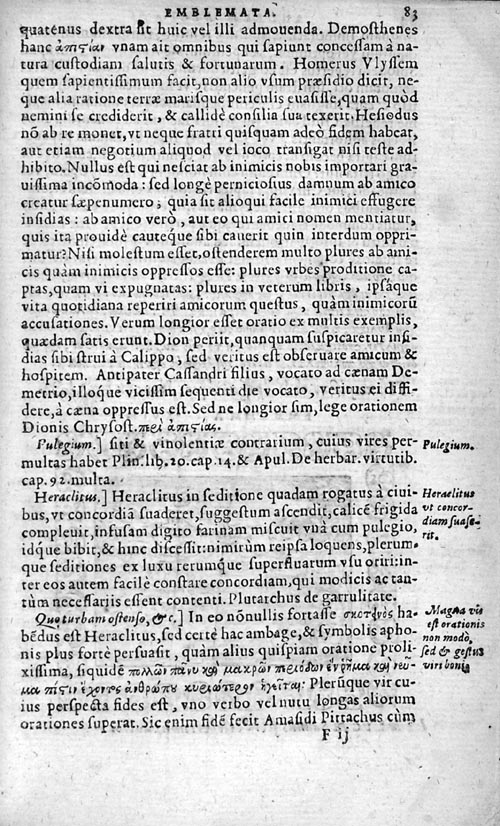 EMBLEMATA. 83
quatenus dextra sit huic vel illi admouenda. Demosthenes
hanc ἀπιςίαν vnam ait omnibus qui sapiunt concessam à na-
tura custodiam salutis & fortunarum. Homerus Vlyssem
quem sapientissimum facit, non alio vsum præsidio dicit, ne-
que alia ratione terræ marisque periculis euasisse, quam quòd
nemini se crediderit, & callidè consilia sua texerit. Hesiodus
nō ab re monet, vt neque fratri quisquam adeò fidem habeat,
aut etiam negotium aliquod vel ioco transigat nisi teste ad-
hibito. Nullus est qui nesciat ab inimicis nobis importari gra-
uissima incōmoda: sed longè perniciosius damnum ab amico
creatur sæpenumero; quia sit alioqui facile inimici effugere
insidias: ab amico verò, aut eo qui amici nomen mentiatur,
quis ita prouidè cauteque sibi cauerit quin interdum oppri-
matur? Nisi molestum esset, ostenderem multo plures ab ami-
cis quàm inimicis oppressos esse: plures vrbes proditione ca-
ptas, quam vi expugnatas: plures in veterum libris, ipsáque
vita quotidiana reperiri amicorum questus, quàm inimicorū
accusationes. Verum longior esset oratio ex multis exemplis,
quædam satis erunt. Dion periit, quanquam suspicaretur insi-
dias sibi strui à Calippo, sed veritus est obseruare amicum &
hospitem. Antipater Cassandri filius, vocato ad cænam De-
metrio, illoque vicissim sequenti die vocato, veritus ei diffi-
dere, à cæna oppressus est. Sed ne longior sim, lege orationem
Dionis Chrysost. περὶ ἀπιςίας.
Pulegium.] siti & vinolentiæ contrarium, cuius vires per-
multas habet Plin. lib. 20. cap. 14. & Apul. De herbar. virtutib.
cap. 92. multa.
Pulegium.
Heraclitus.] Heraclitus in seditione quadam rogatus à ciui-
bus, vt concordiā suaderet, suggestum ascendit, calicē frigida
compleuit, infusam digito farinam miscuit vnà cum pulegio,
idque bibit, & hinc discessit: nimirùm reipsa loquens, plerum-
que seditiones ex luxu rerumque superfluarum vsu oriri: in-
ter eos autem facilè constare concordiam, qui modicis ac tan-
tùm necessariis essent contenti. Plutarchus de garrulitate.
Heraclitus
vt concor-
diam suase-
rit.
Quo turbam ostenso, &c.] In eo nōnullis fortasse σκοτεινὸς ha-
bēdus est Heraclitus, sed certè hac ambage, & symbolis apho-
nis plus fortè persuasit, quàm alius quispiam oratione proli-
xissima, siquidē πολλῶν πάνυ καὶ μακρῶν περιόδων ἓν ῥῆμα καὶ νεῦ-
μα πίςιν ἔχοντος ἀνθρώπου κυριώτερον ἡγεῖται: Plerūque vir cu-
ius perspecta fides est, vno verbo vel nutu longas aliorum
orationes superat. Sic enim fidē fecit Amasidi Pittachus cùm
Magna vis
est orationis
non modò,
sed & gestus
viri boni.
F ij